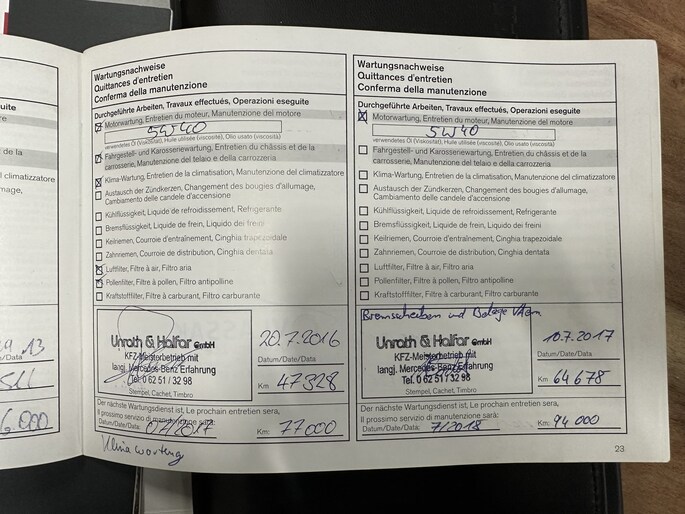 uite
de la
l climatizzatore
mage,
29 13
/Data
511
6.000
Wartungsnachweise
Quittances d'entretien
Conferma della manutenzione
Durchgeführte Arbeiten, Travaux effectués, Operazioni eseguite
Motorwartung, Entretien du moteur, Manutenzione del motore
5W40
verwendetes Öl (Viskosität), Huile utilisée (viscosité), Olio usato (viscosità)
Fahrgestell- und Karosseriewartung, Entretien du châssis et de la
carrosserie, Manutenzione del telaio e della carrozzeria
Klima-Wartung, Entretien de la climatisation, Manutenzione del climatizzatore
Austausch der Zündkerzen, Changement des bougies d'allumage,
Cambiamento delle candele d'accensione
Kühlflüssigkeit, Liquide de refroidissement, Refrigerante
Bremsflüssigkeit, Liquide de frein, Liquido dei freni
Keilriemen, Courroie d'entraînement, Cinghia trapezoidale
Zahnriemen, Courroie de distribution, Cinghia dentata
Luftfilter, Filtre à air, Filtro aria
Pollenfilter, Filtre à pollen, Filtro antipolline
Kraftstofffilter, Filtre à carburant, Filtro carburante
Unrath & Halfar GmbH
KFZ-Meisterbetrieb mit
langj. Mercedes-Benz Erfahrung
Tel. 0 62 51 / 32 98
Stempel, Cachet, Timbro
20.7.2016
Datum/Date/Data
Km 47328
Der nächste Wartungsdienst ist, Le prochain entretien sera,
Il prossimo servizio di manutenzione sarà:
Datum/Date/Data: 07/2017 Km: 77000
Klimawartung
Wartungsnachweise
Quittances d'entretien
Conferma della manutenzione
Durchgeführte Arbeiten, Travaux effectués, Operazioni eseguite
Motorwartung, Entretien du moteur, Manutenzione del motore
5W40
verwendetes Öl (Viskosität), Huile utilisée (viscosité), Olio usato (viscosità)
Fahrgestell- und Karosseriewartung, Entretien du châssis et de la
carrosserie, Manutenzione del telaio e della carrozzeria
Klima-Wartung, Entretien de la climatisation, Manutenzione del climatizzatore
Austausch der Zündkerzen, Changement des bougies d'allumage,
Cambiamento delle candele d'accensione
Kühlflüssigkeit, Liquide de refroidissement, Refrigerante
Bremsflüssigkeit, Liquide de frein, Liquido dei freni
Keilriemen, Courroie d'entraînement, Cinghia trapezoidale
Zahnriemen, Courroie de distribution, Cinghia dentata
Luftfilter, Filtre à air, Filtro aria
Pollenfilter, Filtre à pollen, Filtro antipolline
Kraftstofffilter, Filtre à carburant, Filtro carburante
Bremsscheiben und Beläge
Unrath & Halfar GmbH
KFZ-Meisterbetrieb mit
langj. Mercedes-Benz Erfahrung
Tel. 0 62 51 / 32 98
Stempel, Cachet, Timbro
10.7.2017
Datum/Date/Data
Km 64678
Der nächste Wartungsdienst ist, Le prochain entretien sera,
Il prossimo servizio di manutenzione sarà:
Datum/Date/Data: 7/2018 Km: 94000
23